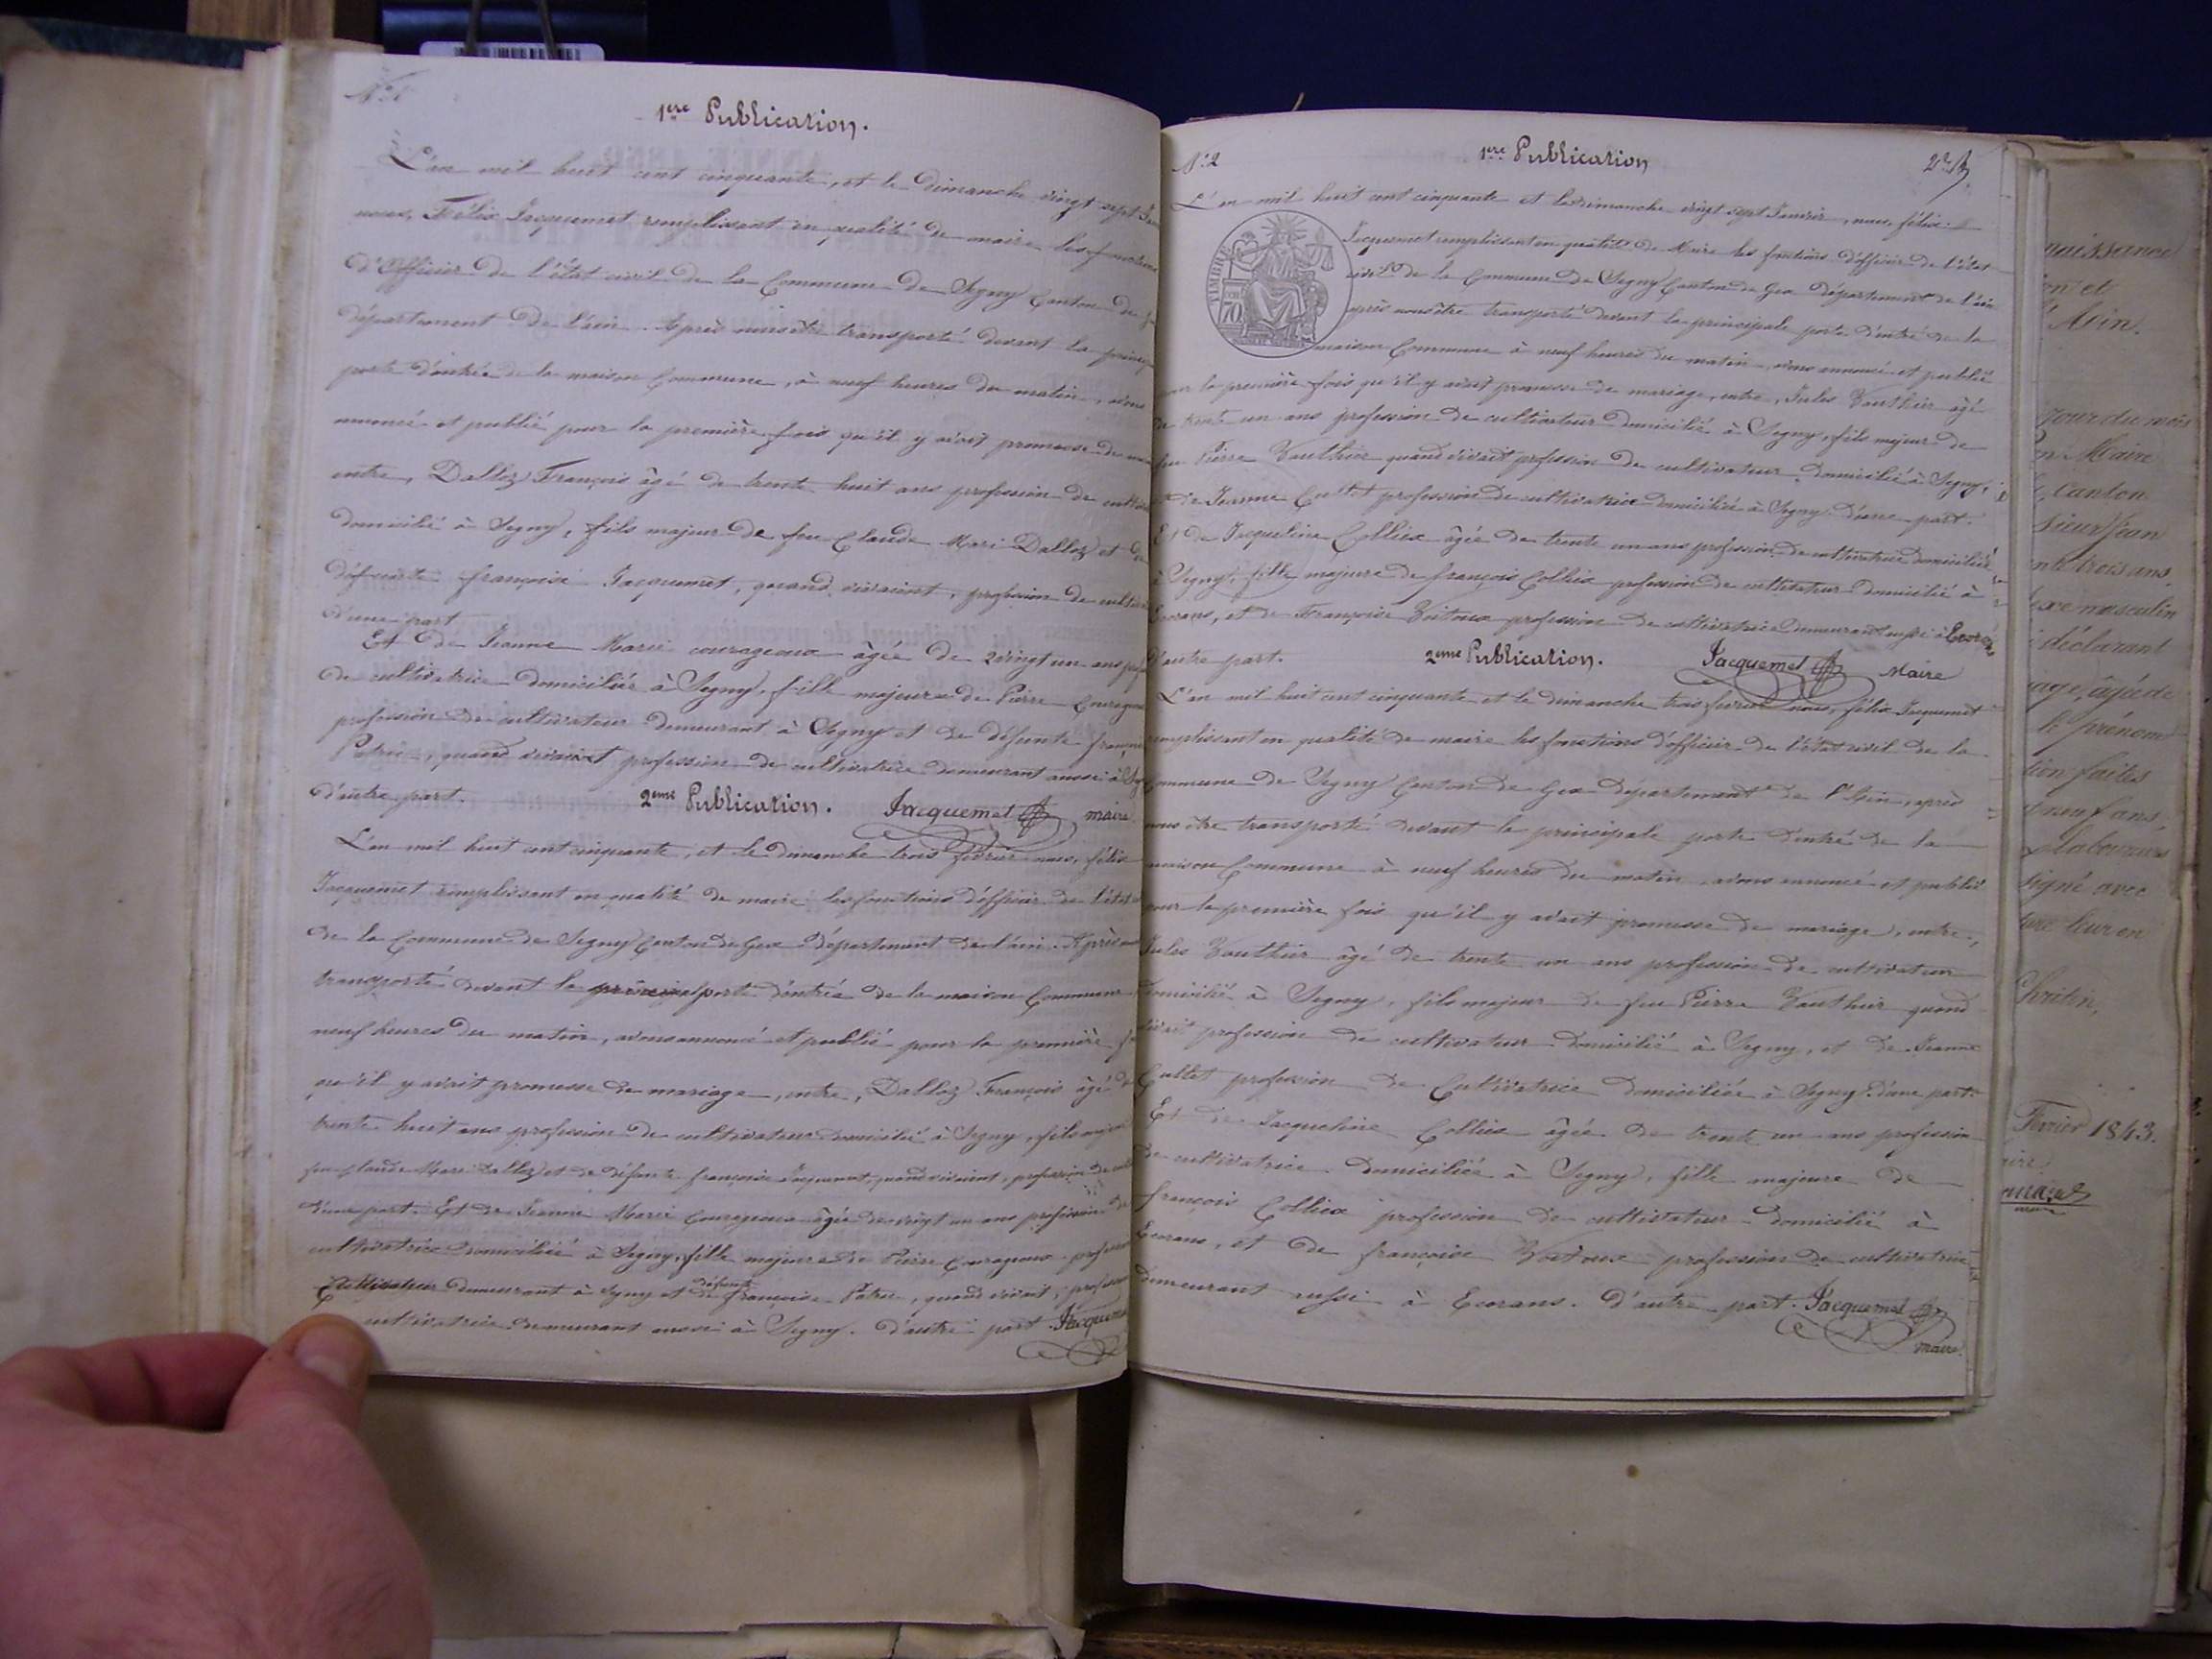 1ere Publication.
L'an mil huit cent cinquante, et le Dimanche vingt sept
nous, Félix Jacquemet remplissant en qualité de maire les fonctions
d'officier de l'état civil de la Commune de Segny Canton de
département de l'ain. Après nous être transporté devant la
porte d'entrée de la maison Commune, à neuf heures du matin, avons
annoncé et publié pour la première fois qu'il y avait promesse de
entre, Dalloz François âgé de trente huit ans profession de
domicilié à Segny, fils majeur de feu Claude Marie Dalloz et de
défunte françoise Jacquemet, quand vivaient, profession de
d'une part
Et de Jeanne Marie courageoux âgée de vingt un ans
de cultivatrice domiciliée à Segny, fille majeure de Pierre
profession de cultivateur demeurant à Segny et de défunte
Patric, quand vivait profession de cultivatrice demeurant aussi à
d'autre part.
2eme Publication. Jacquemet maire
L'an mil huit cent cinquante, et le dimanche trois février nous, félix
Jacquemet remplissant en qualité de maire les fonctions d'officier de l'état
de la Commune de Segny Canton de Gex département de l'ain. Après
transporté devant la porte d'entrée de la maison Commune
neuf heures du matin, avons annoncé et publié pour la première
qu'il y avait promesse de mariage, entre, Dalloz François âgé de
trente huit ans profession de cultivateur domicilié à Segny, fils
feu Claude Marie Dalloz et de défunte françoise Jacquemet, quand vivaient, profession de
d'une part. Et de Jeanne Marie Courageoux âgée de vingt un ans profession de
cultivatrice domiciliée à Segny, fille majeure de Pierre Courageoux
Cultivateur demeurant à Segny et de défunte françoise Patric, quand vivait,
cultivatrice demeurant aussi à Segny. d'autre part.
N°2 1ere Publication
L'an mil huit cent cinquante et le dimanche vingt sept Janvier, nous, félix
TIMBRE
70
Jacquemet remplissant en qualité de Maire les fonctions d'officier de l'état
civil de la Commune de Segny Canton de Gex Département de l'ain
après nous être transporté devant la principale porte d'entré de la
maison Commune à neuf heures du matin, avons annoncé et publié
pour la première fois qu'il y avait promesse de mariage, entre, Jules Vauthier âgé
de trente un ans profession de cultivateur domicilié à Segny, fils majeur de
feu Pierre Vauthier quand vivait profession de cultivateur domicilié à Segny,
et de Jeanne Cullet profession de cultivatrice domiciliée à Segny d'une part.
Et de Jacqueline Colliex âgée de trente un ans profession de cultivatrice domiciliée
à Segny, fille majeure de françois Colliex profession de cultivateur domicilié à
Ecorans, et de Françoise profession de cultivatrice demeurant aussi à
d'autre part. 2eme Publication. Jacquemet Maire
L'an mil huit cent cinquante et le dimanche trois février nous, félix Jacquemet
remplissant en qualité de maire les fonctions d'officier de l'état civil de la
commune de Segny Canton de Gex département de l'Ain, après
nous être transporté devant la principale porte d'entré de la
maison Commune à neuf heures du matin, avons annoncé et publié
pour la première fois qu'il y avait promesse de mariage, entre,
Jules Vauthier âgé de trente un ans profession de cultivateur
domicilié à Segny, fils majeur de feu Pierre Vauthier quand
vivait profession de cultivateur domicilié à Segny, et de Jeanne
Cullet profession de Cultivatrice domiciliée à Segny d'une part.
Et de Jacqueline Colliex âgée de trente un ans profession
de cultivatrice domiciliée à Segny, fille majeure de
françois Colliex profession de cultivateur domicilié à
Ecorans, et de françoise profession de cultivatrice
demeurant aussi à Ecorans. d'autre part. Jacquemet
maire.
naissance
on et
l'Ain.
jour du mois
Maire
canton
sieur Jean
trois ans,
sexe masculin
déclarant
âgée de
le prénom
faites
neuf ans,
signé avec
Février 1843.